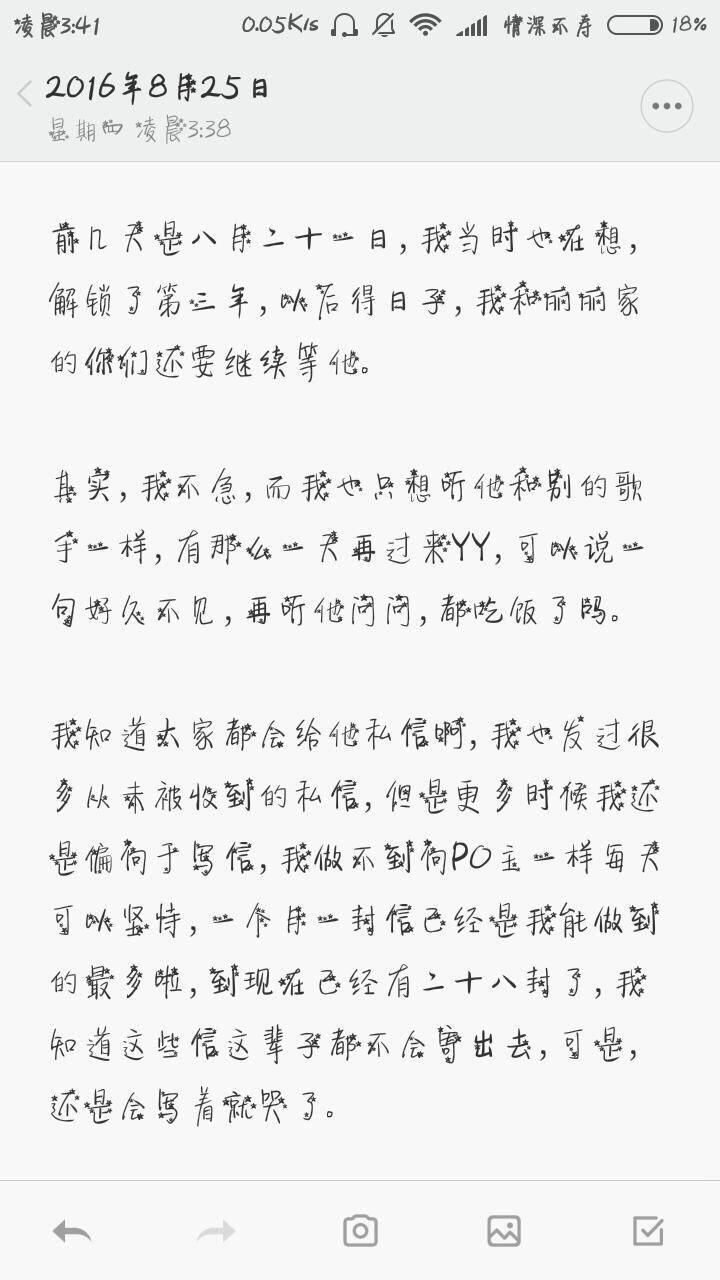 凌晨3:41 0.05K/s 情深不寿 18%
2016年8月25日
星期四 凌晨3:38
前几天是八月二十一日,我当时也在想,
解锁了第三年,以后得日子,我和丽丽家
的你们还要继续等他。
其实,我不急,而我也只想听他和别的歌
手一样,有那么一天再过来YY,可以说一
句好久不见,再听他问问,都吃饭了吗。
我知道大家都会给他私信啊,我也发过很
多从未被收到的私信,但是更多时候我还
是偏向于写信,我做不到向PO主一样每天
可以坚恃,一个月一封信已经是我能做到
的最多啦,到现在已经有二十八封了,我
知道这些信这辈子都不会寄出去,可是,
还是会写着就哭了。